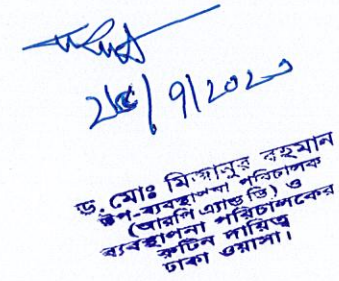 ২৫/৭/২০২০
ড. মোঃ মিজানুর রহমান
উপ-ব্যবস্থাপনা পরিচালক
(আরপি এ্যান্ড ডি) ও
ব্যবস্থাপনা পরিচালকের
রুটিন দায়িত্ব
ঢাকা ওয়াসা।